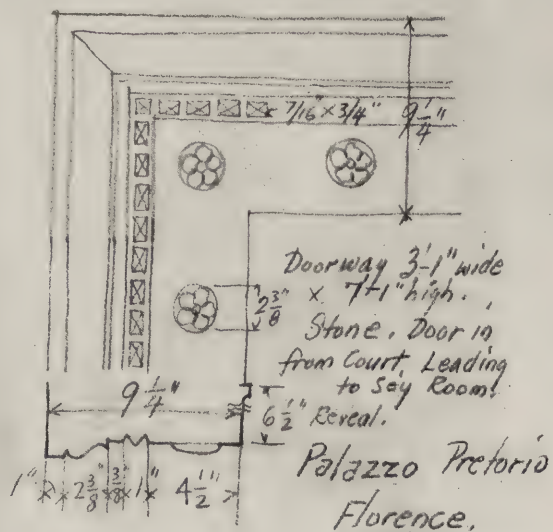 7/16" x 3/4"
9 1/4"
Doorway 3'-1" wide
x 7'-1" high.
2 3/8"
Stone. Door in
from Court Leading
to Say Room.
9 1/4"
6 1/2" Reveal.
1" 2 3/8" 3/8" 1" 4 1/2"
Palazzo Pretorio
Florence.